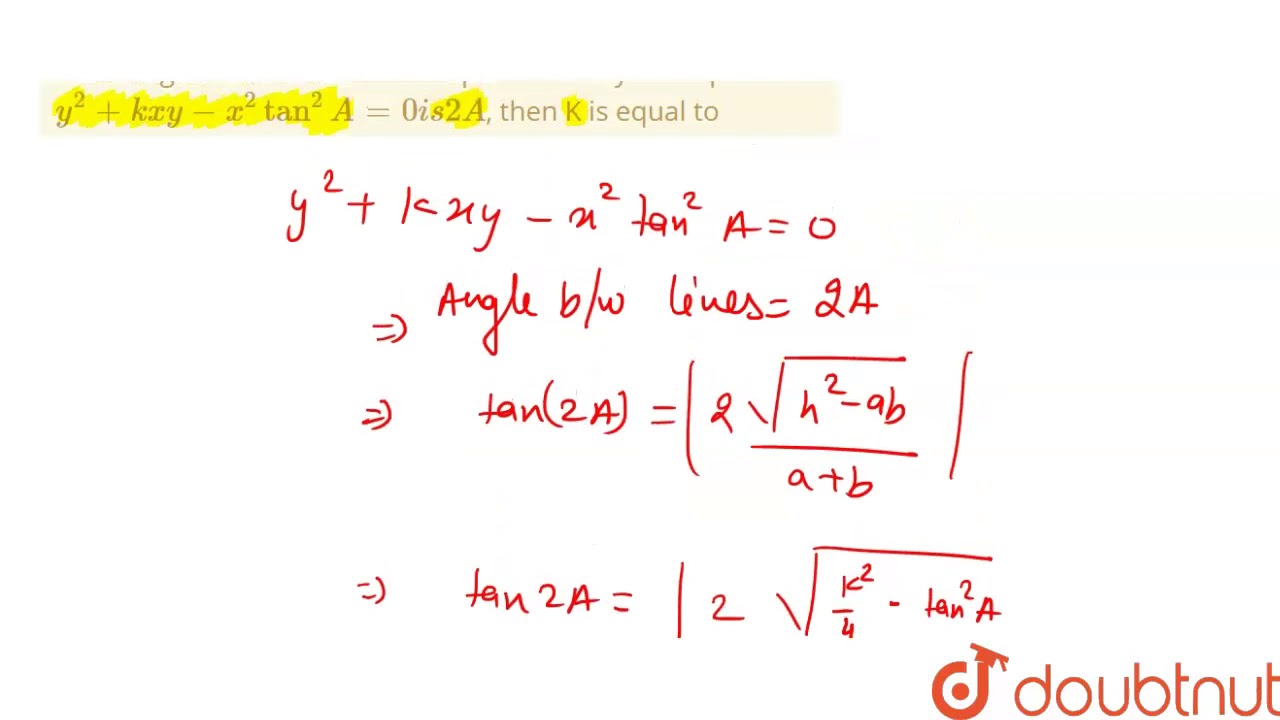 y² + kxy − x² tan² A = 0is2A, then K is equal to
y² + kxy − x² tan² A = 0
⇒ Angle b/w lines = 2A
⇒ tan(2A) = | 2 √(h²−ab) / a+b |
⇒ tan 2A = | 2 √(k²/4 - tan² A
doubtnut